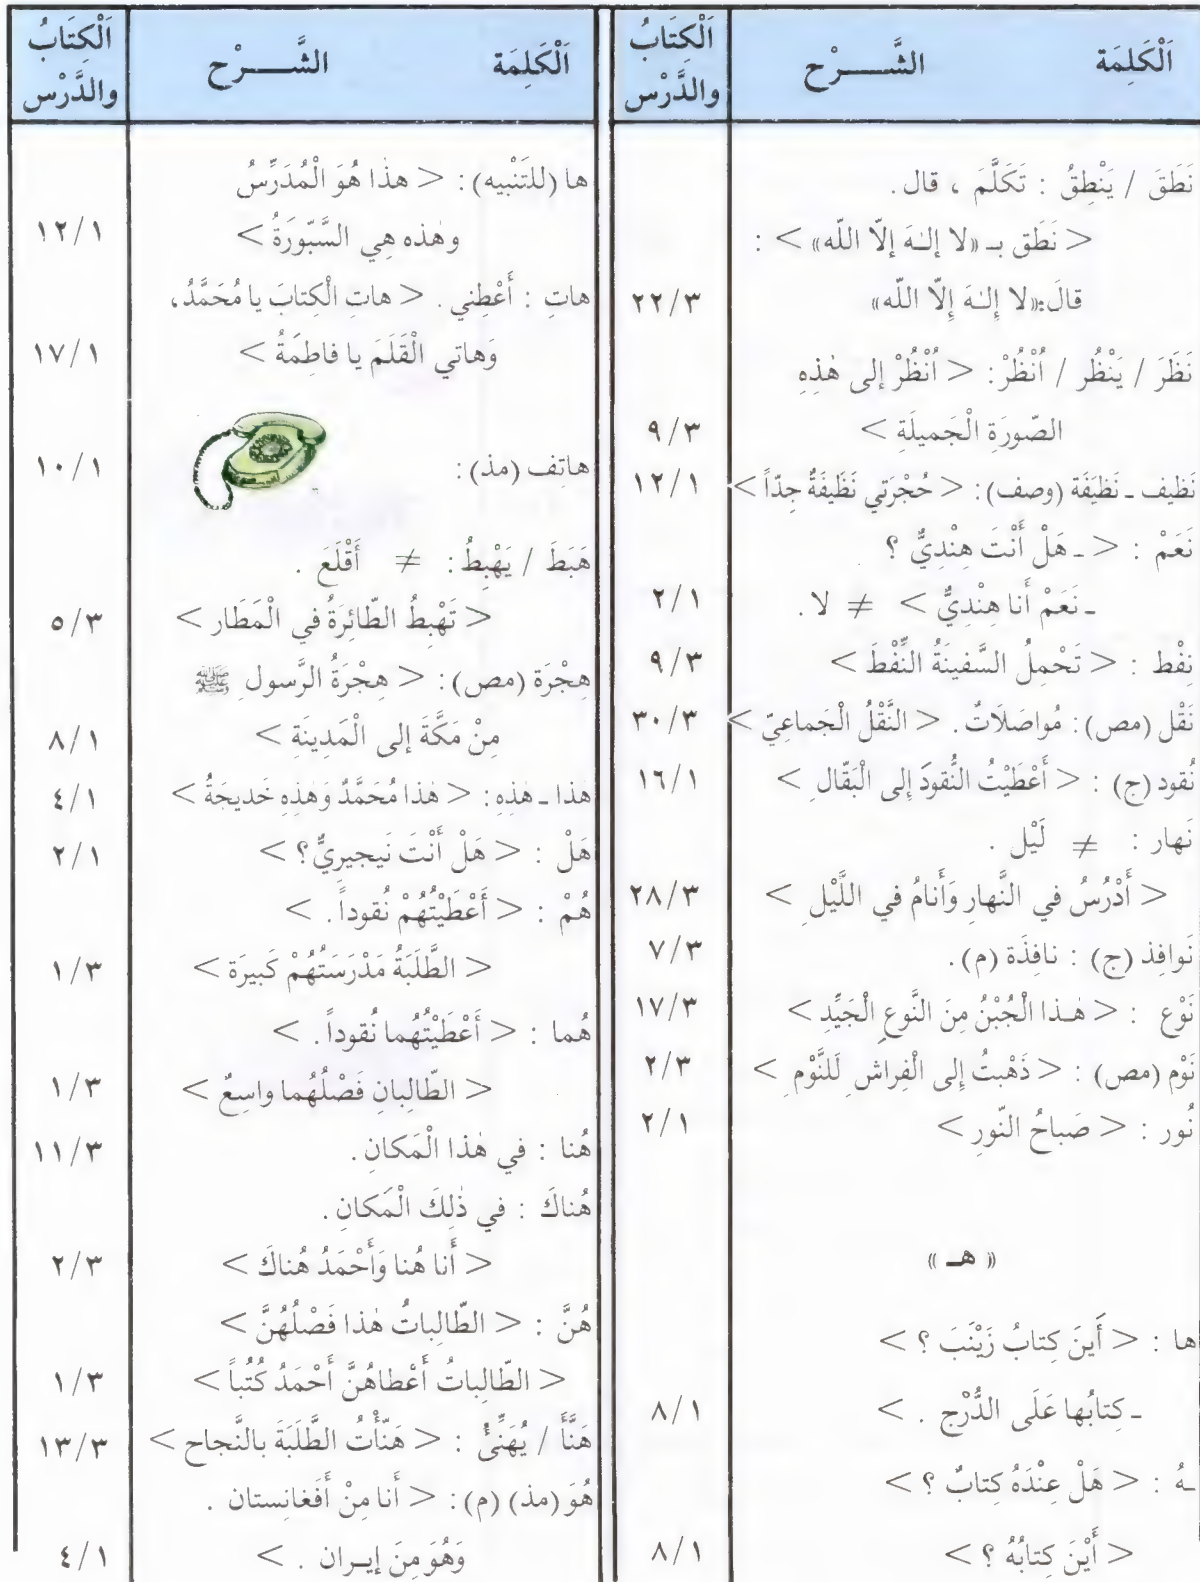 اَلْكَلِمَة الشَّـــرْح اَلْكِتَابُ والدَّرْس
نَطَقَ / يَنْطِقُ : تَكَلَّمَ ، قال .
< نَطَق بـ «لا إلـٰهَ إلّا اللّه» > :
قالَ:«لا إِلـٰهَ إِلّا اللّه» ٢٢/٣
نَظَرَ / يَنْظُر / اُنْظُرْ : < اُنْظُرْ إلى هٰذِهِ
الصّورَةِ الْجَميلَةِ > ٩/٣
نَظيف ـ نَظيَفَة (وصف) : < حُجْرَتي نَظَيفَةٌ جِدّاً > ١٢/١
نَعَمْ : < ـ هَلْ أَنْتَ هِنْدِيٌّ ؟
ـ نَعَمْ أَنا هِنْدِيٌّ > ≠ لا . ٢/١
نِفْط : < تَحْمِلُ السَّفينَةُ النِّفْطَ > ٩/٣
نَقْل (مص) : مُواصَلَاتٌ . < النَّقْلُ الْجَماعِيّ > ٣٠/٣
نُقود (ج) : < أَعْطَيْتُ النُّقودَ إِلى الْبَقّالِ > ١٦/١
نَهار : ≠ لَيْل .
< أَدْرُسُ في النَّهارِ وَأَنامُ في اللَّيْلِ > ٢٨/٣
نَوافِذ (ج) : نافِذَة (م) . ٧/٣
نَوْع : < هـٰذا الْجُبْنُ مِنَ النَّوعِ الْجَيِّدِ > ١٧/٣
نَوْم (مص) : < ذَهْبتُ إِلى الْفِراشِ لَلنَّوْمِ > ٢/٣
نُور : < صَباحُ النّورِ > ٢/١
« هـ »
ها : < أَينَ كِتابُ زَيْنَبَ ؟ >
ـ كِتابُها عَلَى الدُّرْجِ . > ٨/١
ـهُ : < هَلْ عِنْدَهُ كِتابٌ ؟ >
< أَيْنَ كِتابُهُ ؟ > ٨/١
اَلْكَلِمَة الشَّـــرْح اَلْكِتَابُ والدَّرْس
ها (للتَنْبيه) : < هٰذا هُوَ الْمُدَرِّسُ
وهٰذه هِي السَّبّورَةُ > ١٢/١
هاتِ : أَعْطِني . < هاتِ الْكِتابَ يا مُحَمَّدُ،
وَهاتي الْقَلَمَ يا فاطِمَةُ > ١٧/١
هاتِف (مذ) : ١٠/١
هَبَطَ / يَهْبِطُ : ≠ أَقْلَعَ .
< تَهْبِطُ الطّائِرَةُ في الْمَطَار > ٥/٣
هِجْرَة (مص) : < هِجْرَةُ الرَّسولِ ﷺ
مِنْ مَكَّةَ إلى الْمَدِينَةِ > ٨/١
هٰذا ـ هٰذِهِ : < هٰذا مُحَمَّدٌ وَهٰذِهِ خَديجَةُ > ٤/١
هَلْ : < هَلْ أَنْتَ نَيجيرِيٌّ؟ > ٢/١
هُمْ : < أَعْطَيْتُهُمْ نُقوداً . >
< الطَّلَبَةُ مَدْرَسَتُهُمْ كَبيرَة > ١/٣
هُما : < أَعْطَيْتُهُما نُقوداً . >
< الطّالِبانِ فَصْلُهُما واسِعٌ > ١/٣
هُنا : في هٰذا الْمَكانِ . ١١/٣
هُناكَ : في ذٰلِكَ الْمَكانِ .
< أَنا هُنا وَأَحْمَدُ هُناكَ > ٢/٣
هُنَّ : < الطّالِباتُ هٰذا فَصْلُهُنَّ >
< الطّالِباتُ أَعْطاهُنَّ أَحْمَدُ كُتُباً > ١/٣
هَنَّأَ / يُهَنِّئُ : < هَنَّأْتُ الطَّلَبَةَ بالنَّجاح > ١٣/٣
هُوَ (مذ) (م) : < أَنا مِنْ أَفَغانِستان .
وَهُوَ مِنَ إيـران . > ٤/١